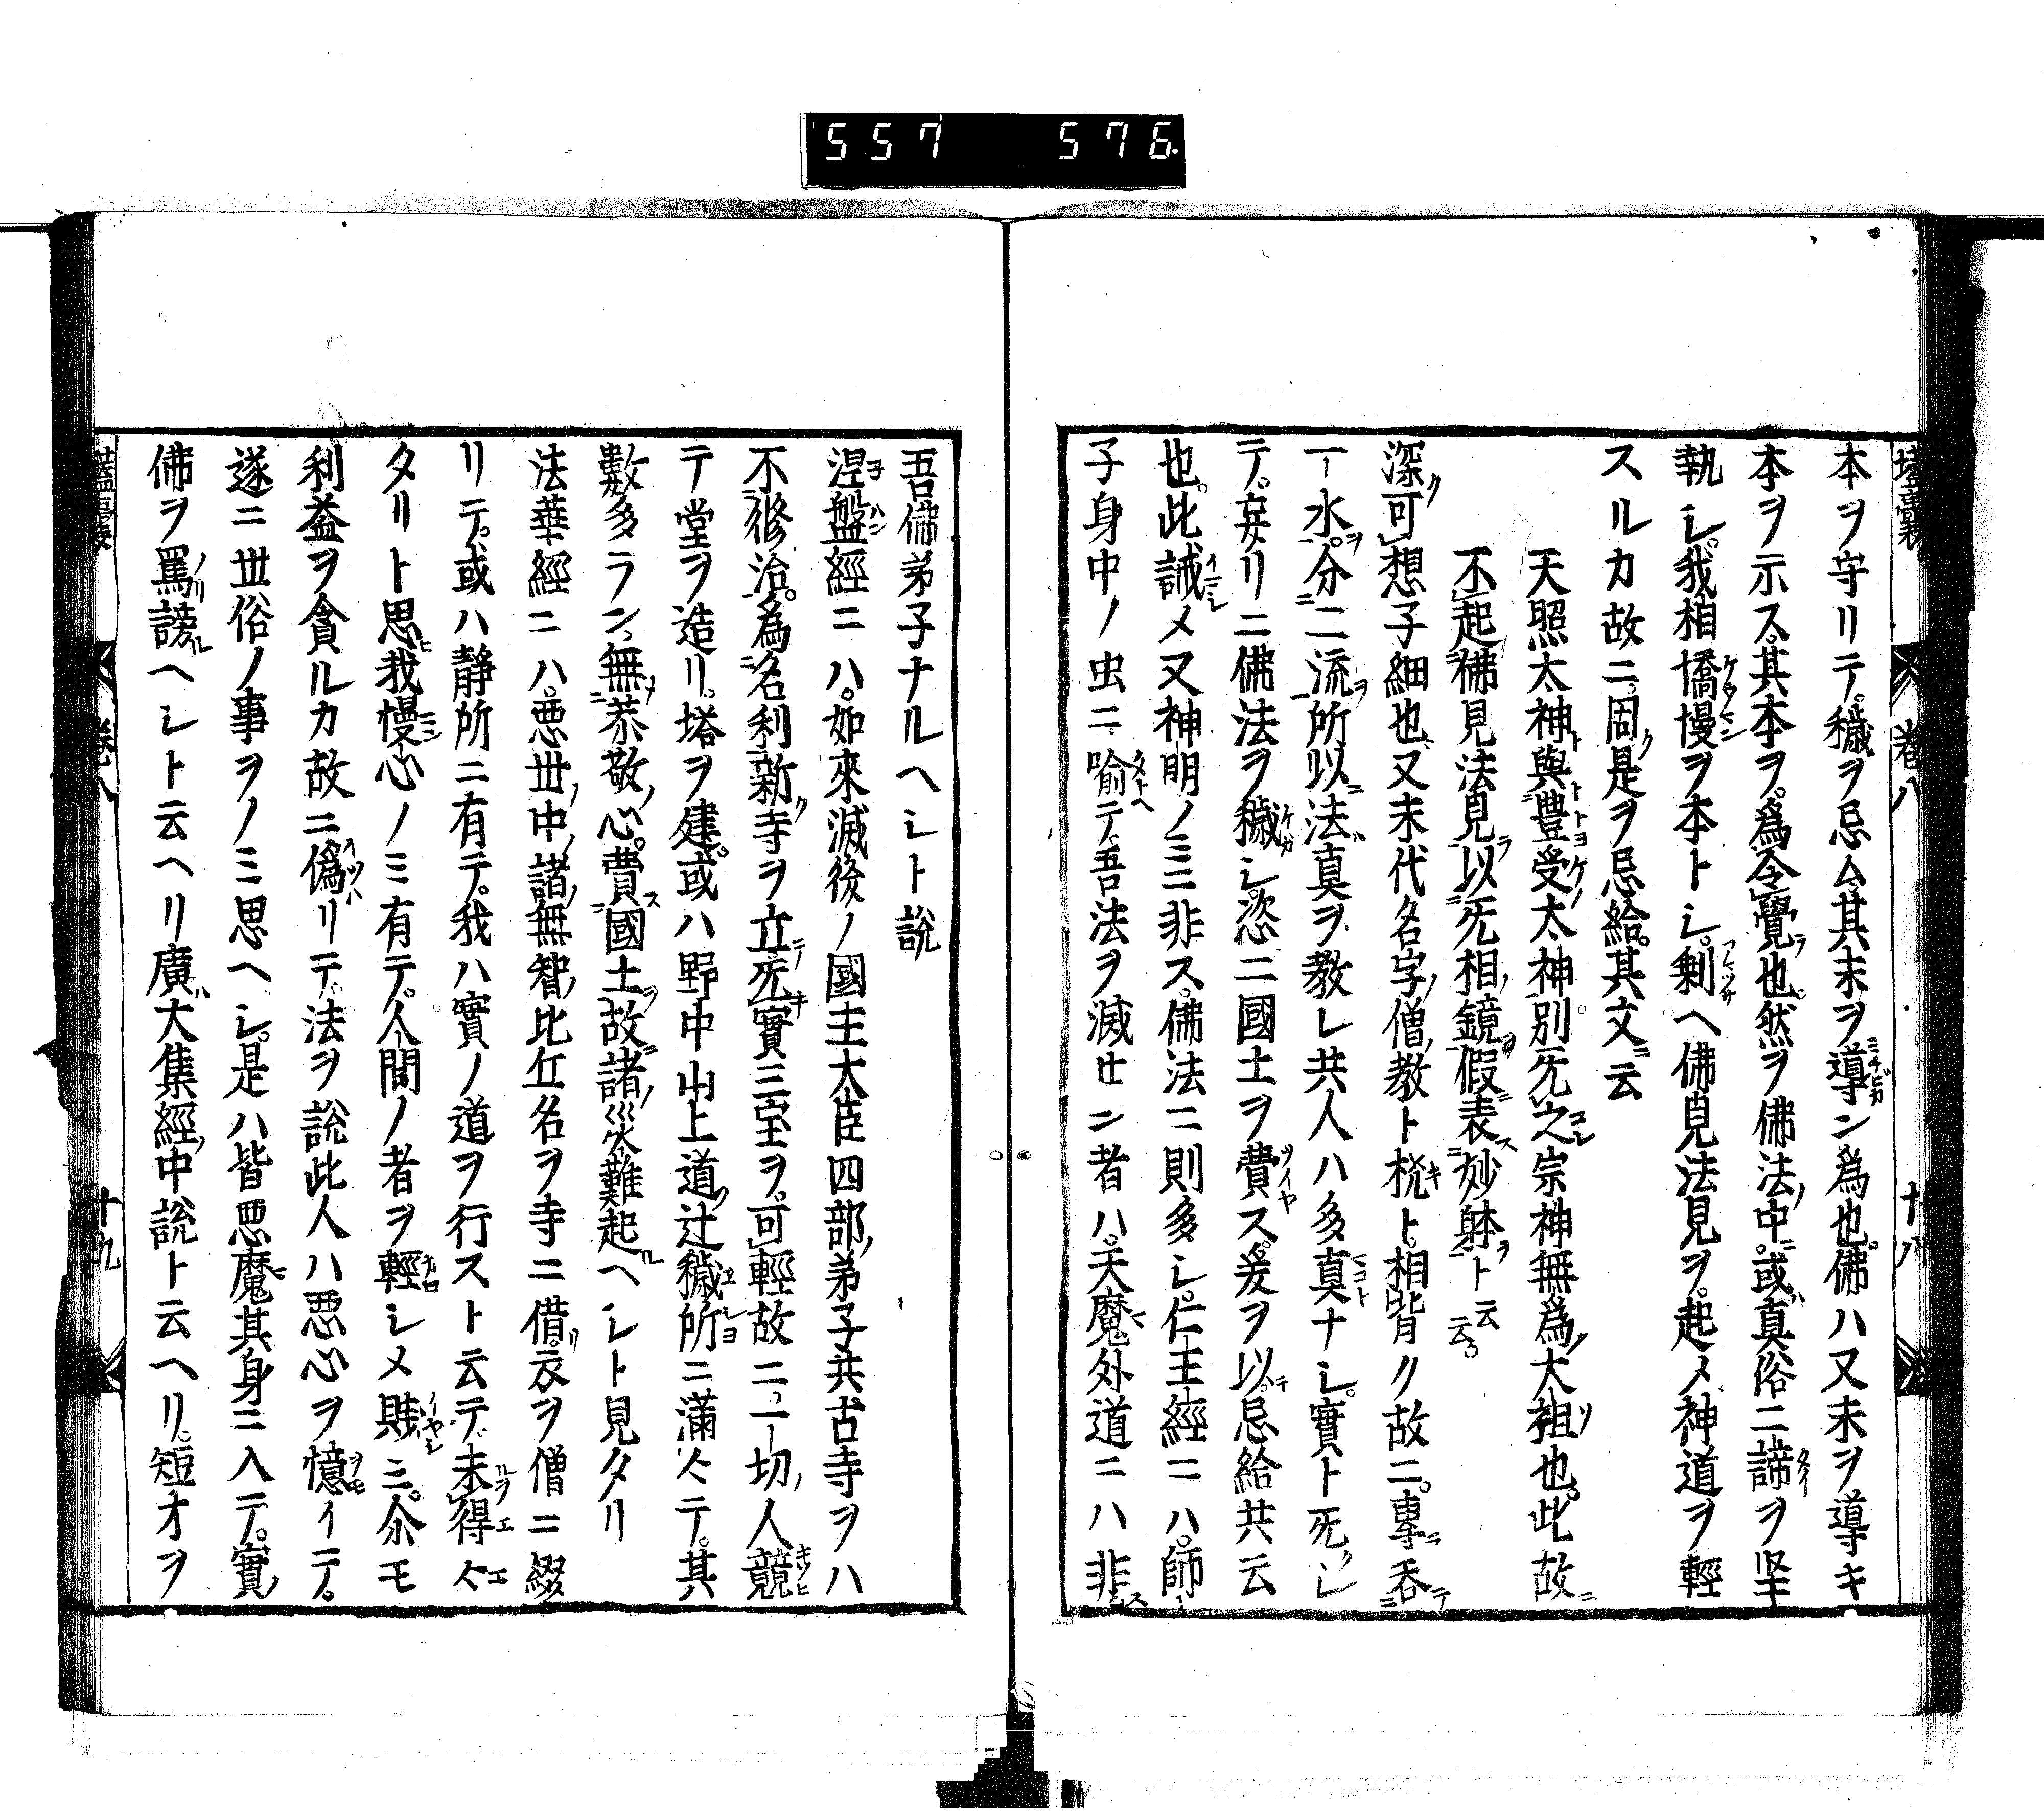 557 576.
壒囊
巻八
十八
本ヲ守リテ。穢ヲ忌ム。其末ヲ導ン為也。佛ハ又末ヲ導キ
本ヲ示ス。其本ヲ。為令覺也。然ヲ佛法ノ中ニ。或ハ真俗二諦ヲ坚
執シ。我相憍慢ヲ本トシ。剰ヘ佛見法見ヲ。起メ神道ヲ輕
スルカ故ニ。固ク是ヲ忌給。其文ニ云
天照太神ト與豊受太神別旡之宗神無為ノ大祖也。此故ニ
不起佛見法見以旡相鏡假表妙躰ヲト云云。
深ク可想子細也。又末代名字ノ僧ノ教ト梲ト。相背ク故ニ。專呑テ
一水ヲ。分二流ヲ所以ニ法ハ真ヲ教レ共人ハ多真ナシ。實ト旡シ
テ。妄リニ佛法ヲ穢シ。恣ニ國土ヲ費ス。爰ヲ以テ忌給共云
也。此誡メ又神明ノミニ非ス。佛法ニ則多シ。仁王經ニハ。師子
子身中ノ虫ニ喻テ。吾法ヲ滅せン者ハ。天魔外道ニハ非ス
吾佛弟子ナルヘシト説
涅盤經ニハ。如來滅後ノ國主大臣四部ノ弟子共古寺ヲハ
不修治。為名利新ク寺ヲ立テ旡實三宝ヲ。可輕故ニ。一切ノ人競
テ堂ヲ造リ。塔ヲ建。或ハ野中山上道ノ辻穢所ニ滿々テ。其
數多ラン。無恭敬ノ心。費國土ヲ故ニ諸ノ災難起ルヘシト見タリ
法華經ニハ。悪丗ノ中ノ諸ノ無智ノ比丘名ヲ寺ニ借リ。衣ヲ僧ニ綴
リテ。或ハ靜所ニ有テ。我ハ實ノ道ヲ行ストス云テ。未得々エ
タリト思ヒ我慢心ノミ有テ。人間ノ者ヲ輕シメ賎ミ。尒モ
利益ヲ貪ルカ故ニ偽リテ。法ヲ説此人ハ悪心ヲ憶イテ。
遂ニ丗俗ノ事ヲノミ思ヘシ。是ハ皆悪魔其身ニ入テ。實ノ
佛ヲ罵謗ルヘシト云ヘリ廣ハ大集經ノ中説ト云ヘリ。短才ヲ
巻八
十九